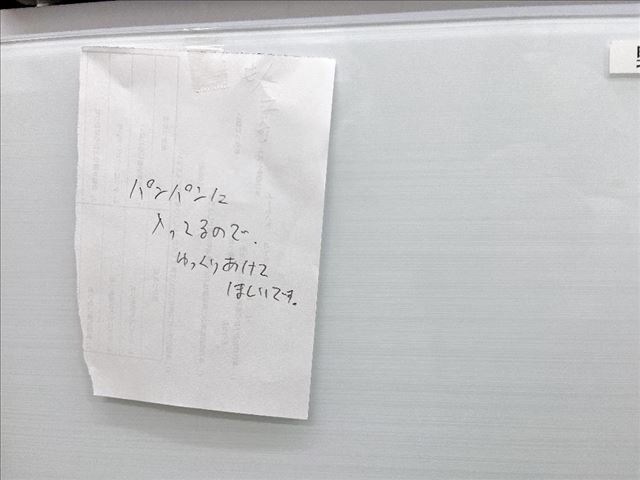 パンパンに
入ってるので、
ゆっくりあけて
ほしいです。